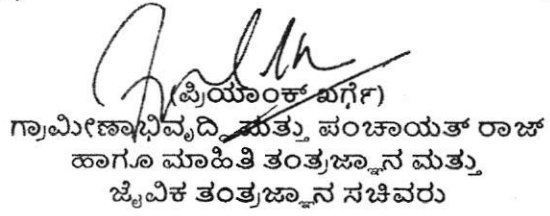 (ಪ್ರಿಯಾಂಕ್ ಖರ್ಗೆ)
ಗ್ರಾಮೀಣಾಭಿವೃದ್ಧಿ ಮತ್ತು ಪಂಚಾಯತ್ ರಾಜ್
ಹಾಗೂ ಮಾಹಿತಿ ತಂತ್ರಜ್ಞಾನ ಮತ್ತು
ಜೈವಿಕ ತಂತ್ರಜ್ಞಾನ ಸಚಿವರು